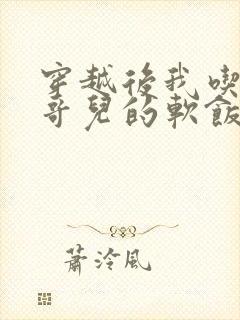 穿越後我喫
哥兒的軟飯
蕭泠風